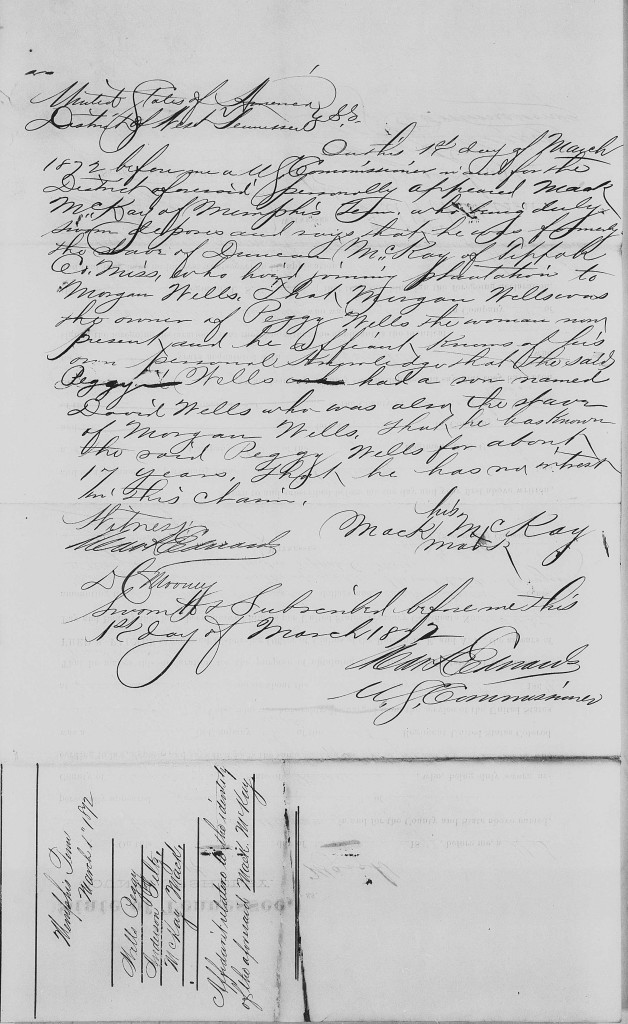 United States of America
District of West Tennessee } SS.
On this 1st day of March
1872 before me a U S Commissioner in and for the
District aforesaid personally appeared Mack
McKay of Memphis Tenn, who being duly
sworn deposes and says that he was formerly
the slave of Duncan McKay of Tippah
Co. Miss, who had joining plantation to
Morgan Wells. That Morgan Wells was
the owner of Peggy Wells the woman now
present and he affiant knows of his
own personal knowledge that the said
Peggy Wells had a son named
David Wells who was also the slave
of Morgan Wells. That he has known
the said Peggy Wells for about
17 years. That he has no intrest
in this claim.
Witness
his
Mack McKay
mark
Edwards
D C Mooney
Sworn to & Subscribed before me this
1st day of March 1872
Edwards
U. S. Commissioner
Memphis Tenn
March 1st 1872
Wells Peggy
Anderson
McKay Mack.
Affidavit relative to the identity
of the aforesaid Mack McKay